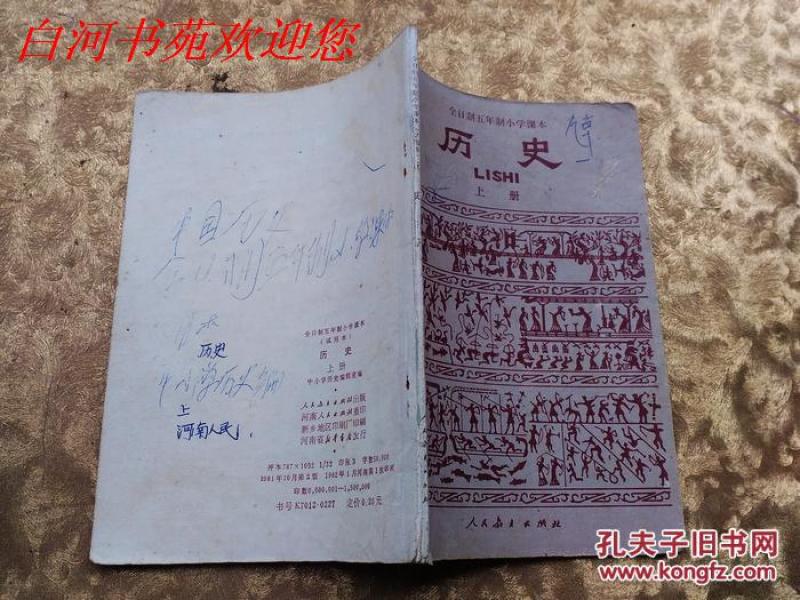 白河书苑欢迎您
全日制五年制小学课本
历史
LISHI
上册
人民教育出版社
中国历史
全日制五年制小学课本
历史
上
河南人民
全日制五年制小学课本
（试用本）
历史
上册
中小学历史编辑室编
人民教育出版社出版
河南人民出版社重印
新乡地区印刷厂印刷
河南省新华书店发行
开本787×1092 1/32 印张3 字数50,000
1981年10月第2版 1982年1月河南第1次印刷
印数0,000,001—1,500,000
书号K7012·0227 定价0.20元
孔夫子旧书网
www.kongfz.com